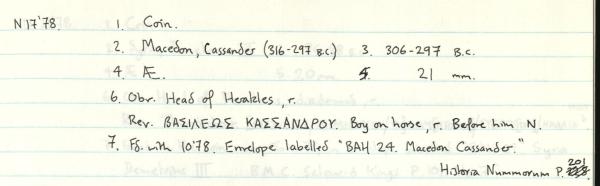 N 17'78. 1. Coin.
2. Macedon, Cassander (316-297 B.C.) 3. 306-297 B.C.
4. Æ. 5. 21 mm.
6. Obv. Head of Herakles, r.
Rev. ΒΑΣΙΛΕΩΣ ΚΑΣΣΑΝΔΡΟΥ. Boy on horse, r. Before him N.
7. Fd. with 10'78. Envelope labelled "BAH 24. Macedon Cassander."
Historia Nummorum P. 201